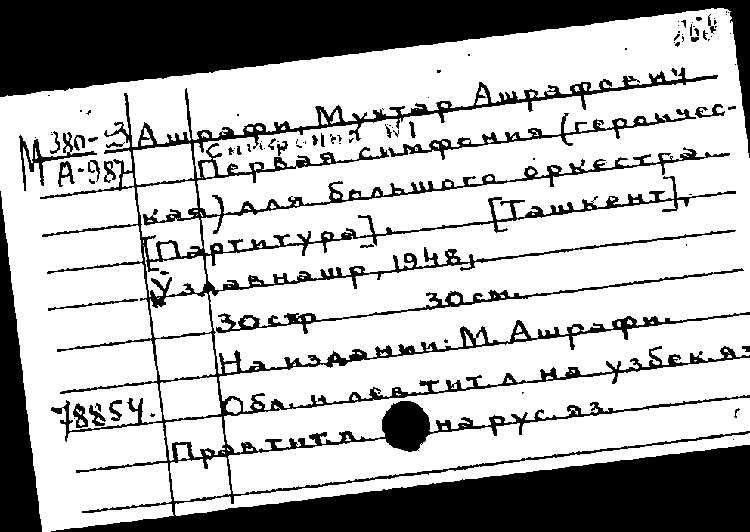 868
М 380-3 Ашрафи, Мухтар Ашрафович
Симфония №1
А-987 Первая симфония (героичес-
кая) для большого оркестра.
[Партитура]. [Ташкент],
Ўздавнашр, 1948.
30 стр 30 см.
На издании: М. Ашрафи.
Обл. и лев. тит. л. на узбек. яз
78854.
Прав. тит. л. на рус. яз.